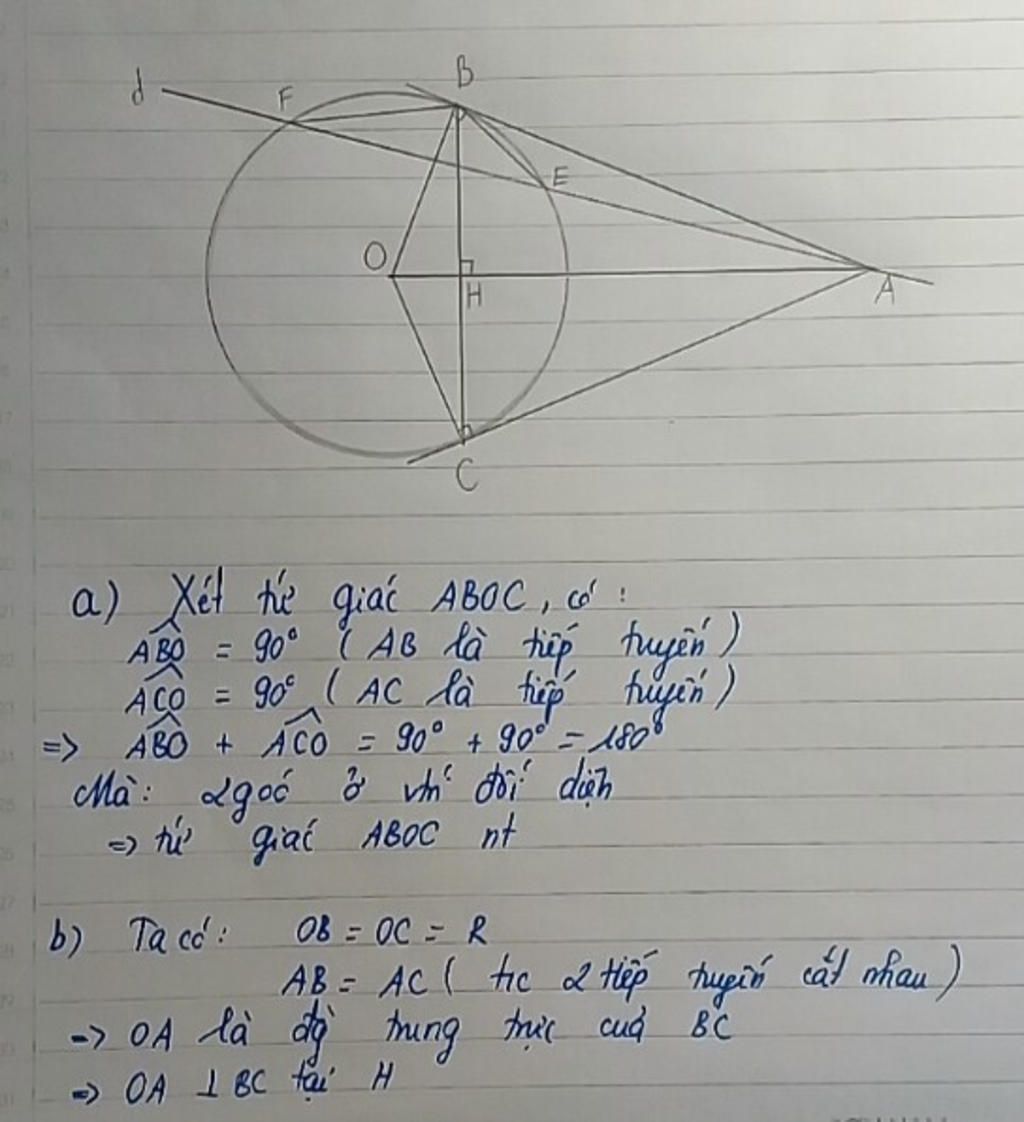 d
F
B
E
O
H
A
C
a) Xét tứ giác ABOC, có :
ABO = 90° ( AB là tiếp tuyến )
ACO = 90° ( AC là tiếp tuyến )
=> ABO + ACO = 90° + 90° = 180°
Mà: 2 góc ở vtrí đối diện
=> tứ giác ABOC nt
b) Ta có: OB = OC = R
AB = AC ( t/c 2 tiếp tuyến cắt nhau )
=> OA là đg trung trực của BC
=> OA ⊥ BC tại H